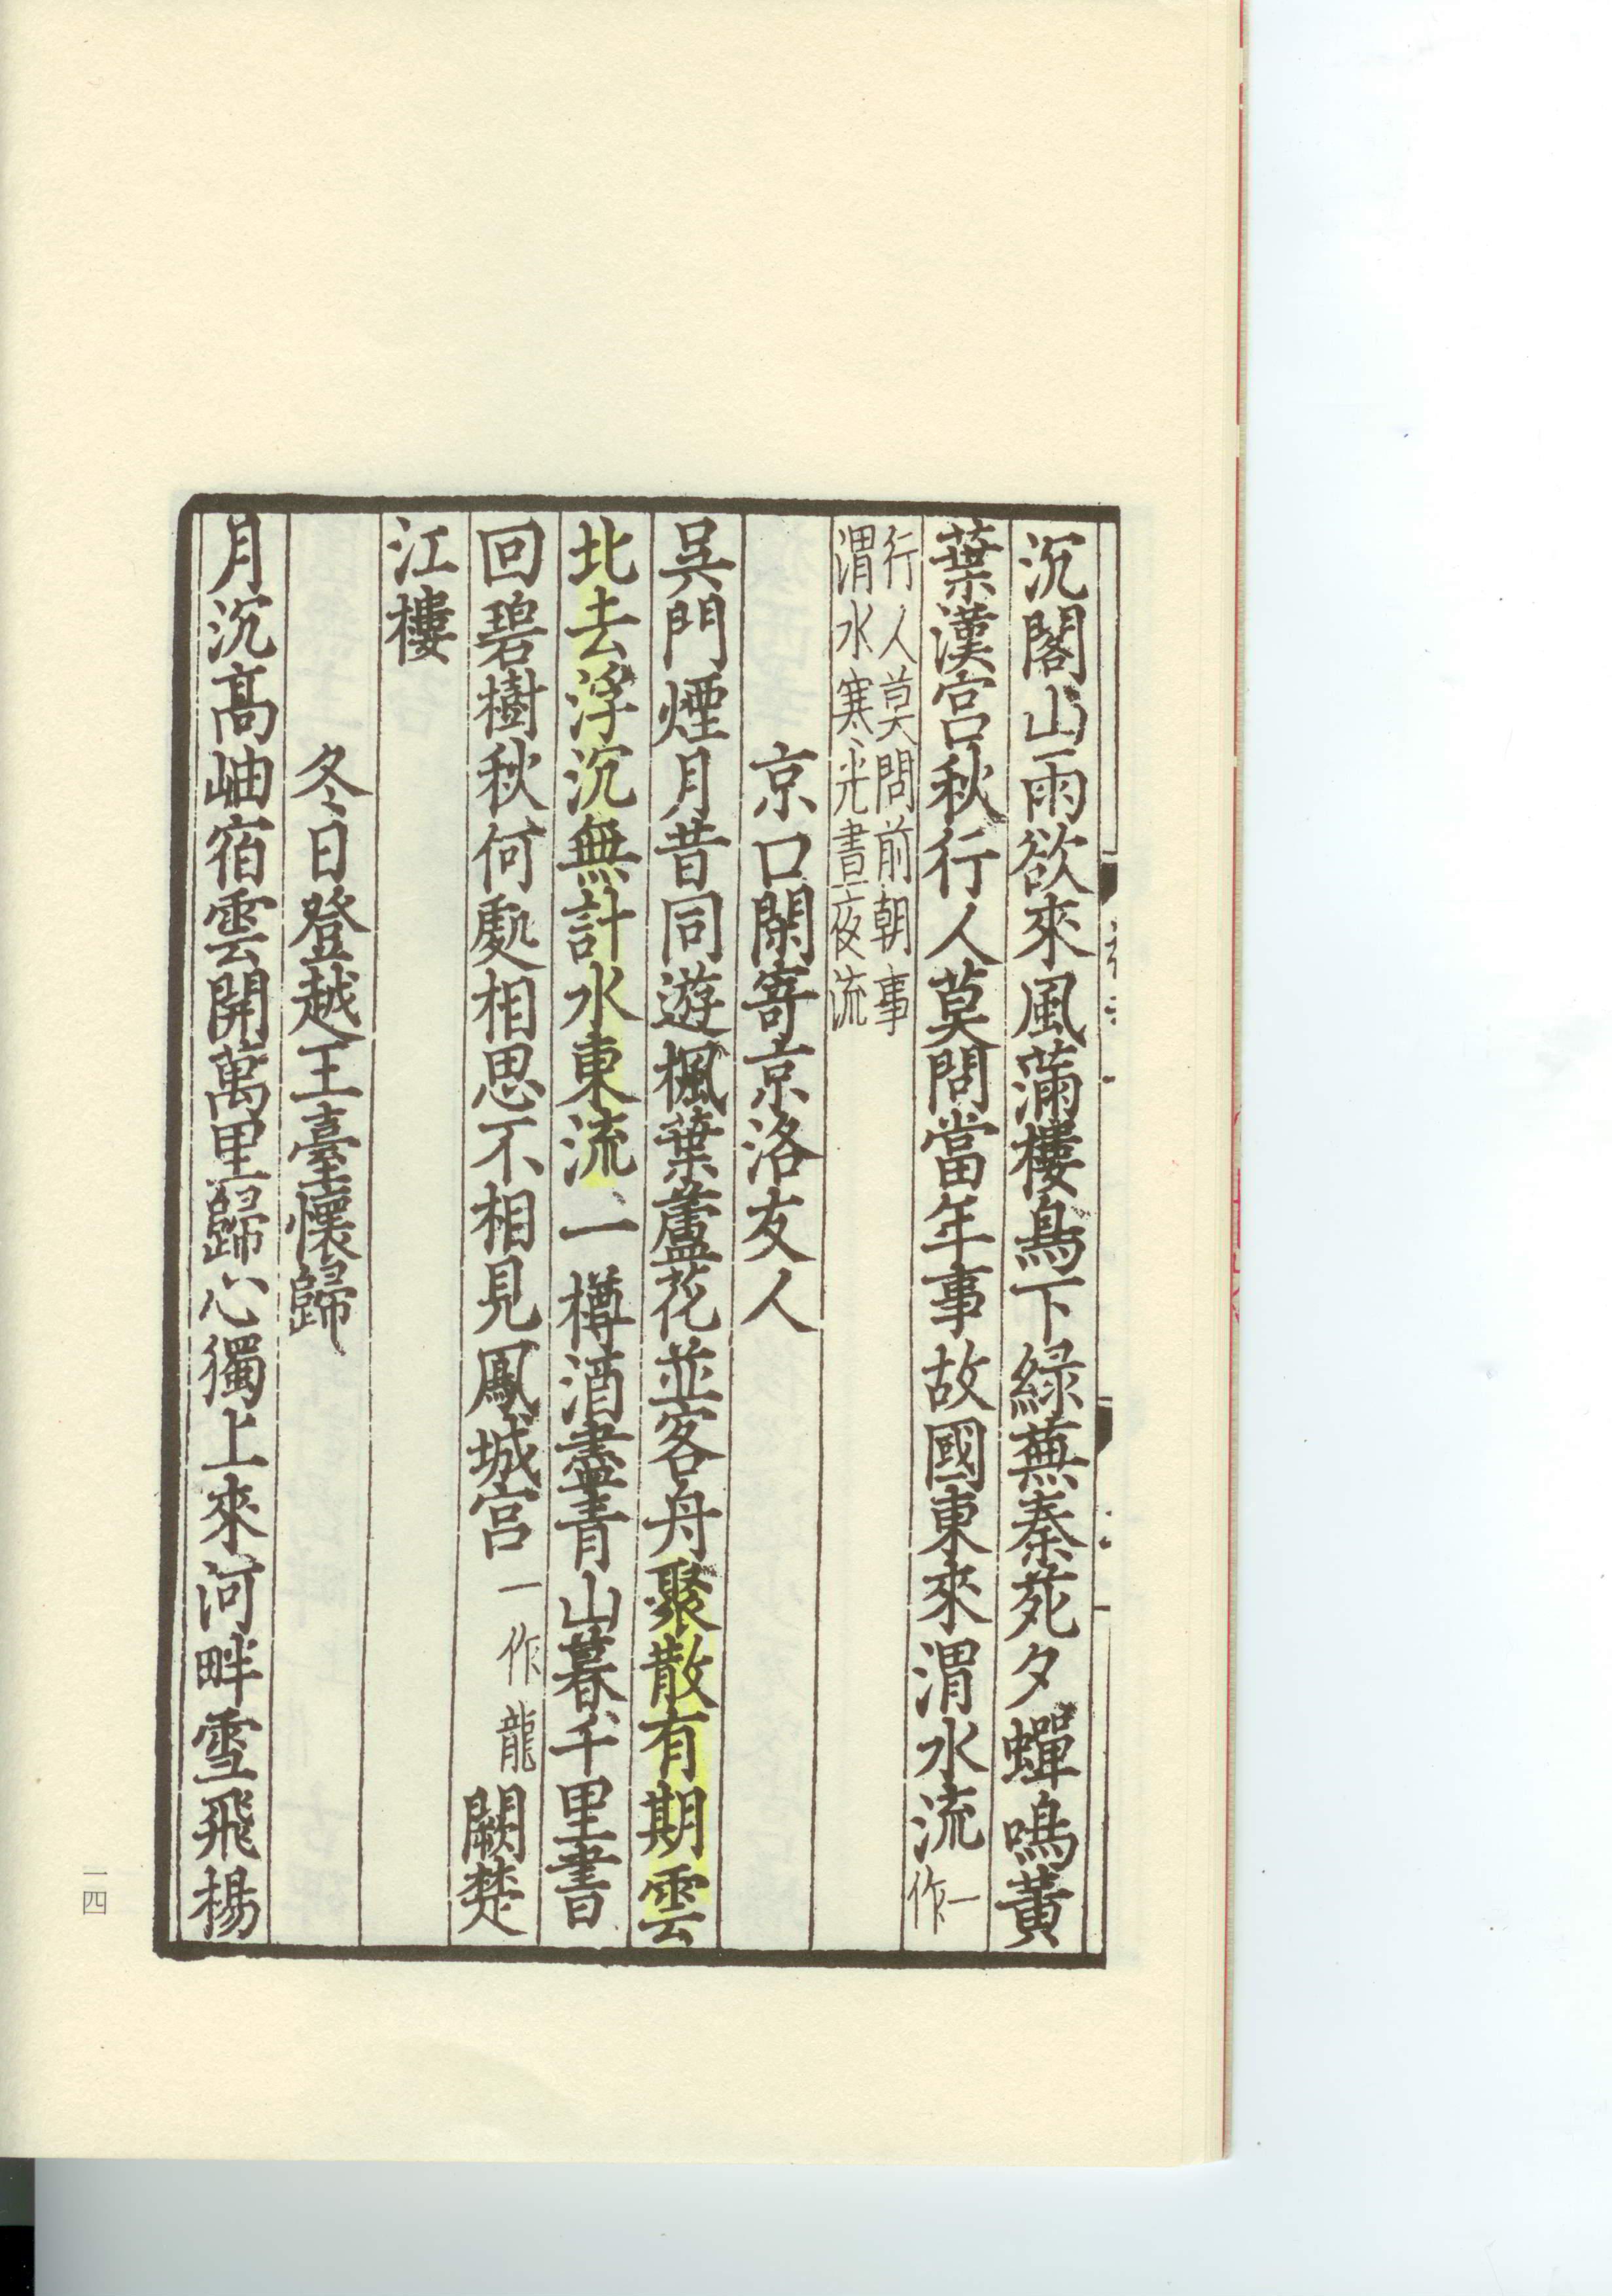 沉閣山雨欲來風滿樓鳥下綠蕪秦苑夕蟬鳴黃
葉漢宮秋行人莫問當年事故國東來渭水流一作
行人莫問前朝事
渭水寒光晝夜流
京口閑寄京洛友人
吳門煙月昔同遊楓葉蘆花並客舟聚散有期雲
北去浮沉無計水東流一樽酒盡青山暮千里書
回碧樹秋何處相思不相見鳳城宮一作龍闕楚
江樓
冬日登越王臺懷歸
月沉高岫宿雲開萬里歸心獨上來河畔雪飛楊
一四